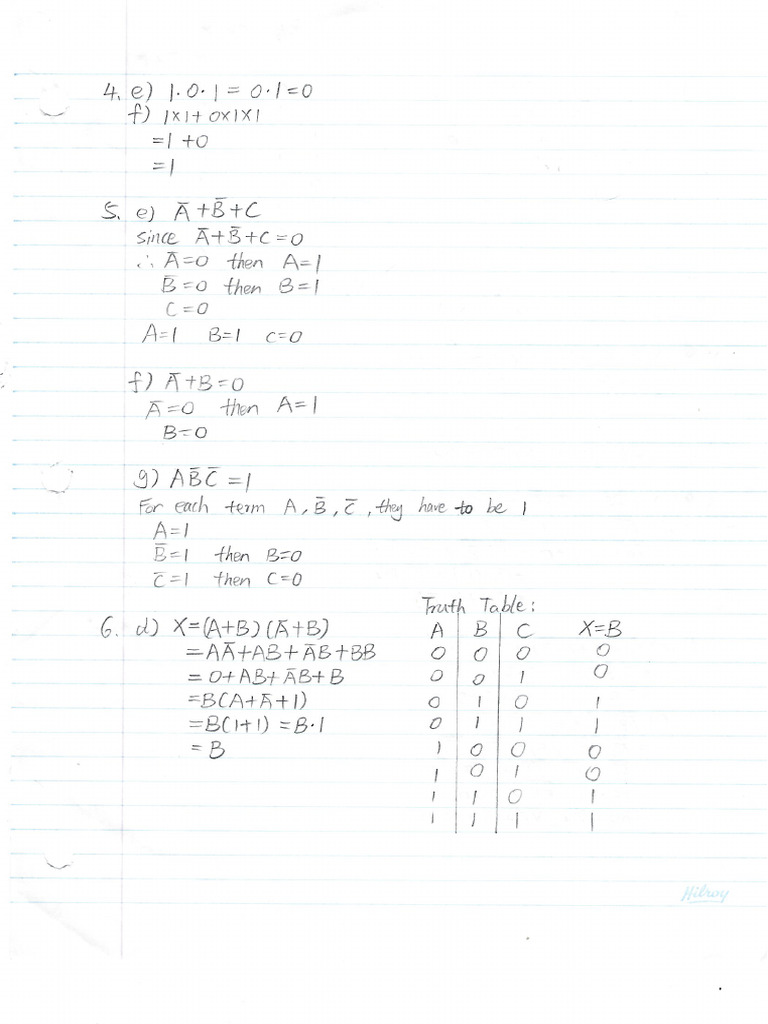 4. e) 1·0·1 = 0·1=0
f) 1×1+0×1×1
=1+0
=1
5. e) A̅+B̅+C
since A̅+B̅+C=0
∴ A̅=0 then A=1
B̅=0 then B=1
C=0
A=1 B=1 C=0
f) A̅+B=0
A̅=0 then A=1
B=0
g) AB̅C̅=1
For each term A, B̅, C̅, they have to be 1
A=1
B̅=1 then B=0
C̅=1 then C=0
6. d) X=(A+B)(A̅+B)
=AA̅+AB+A̅B+BB
=0+AB+A̅B+B
=B(A+A̅+1)
=B(1+1)=B·1
=B
Truth Table:
A B C X=B
0 0 0 0
0 0 1 0
0 1 0 1
0 1 1 1
1 0 0 0
1 0 1 0
1 1 0 1
1 1 1 1
Hilroy